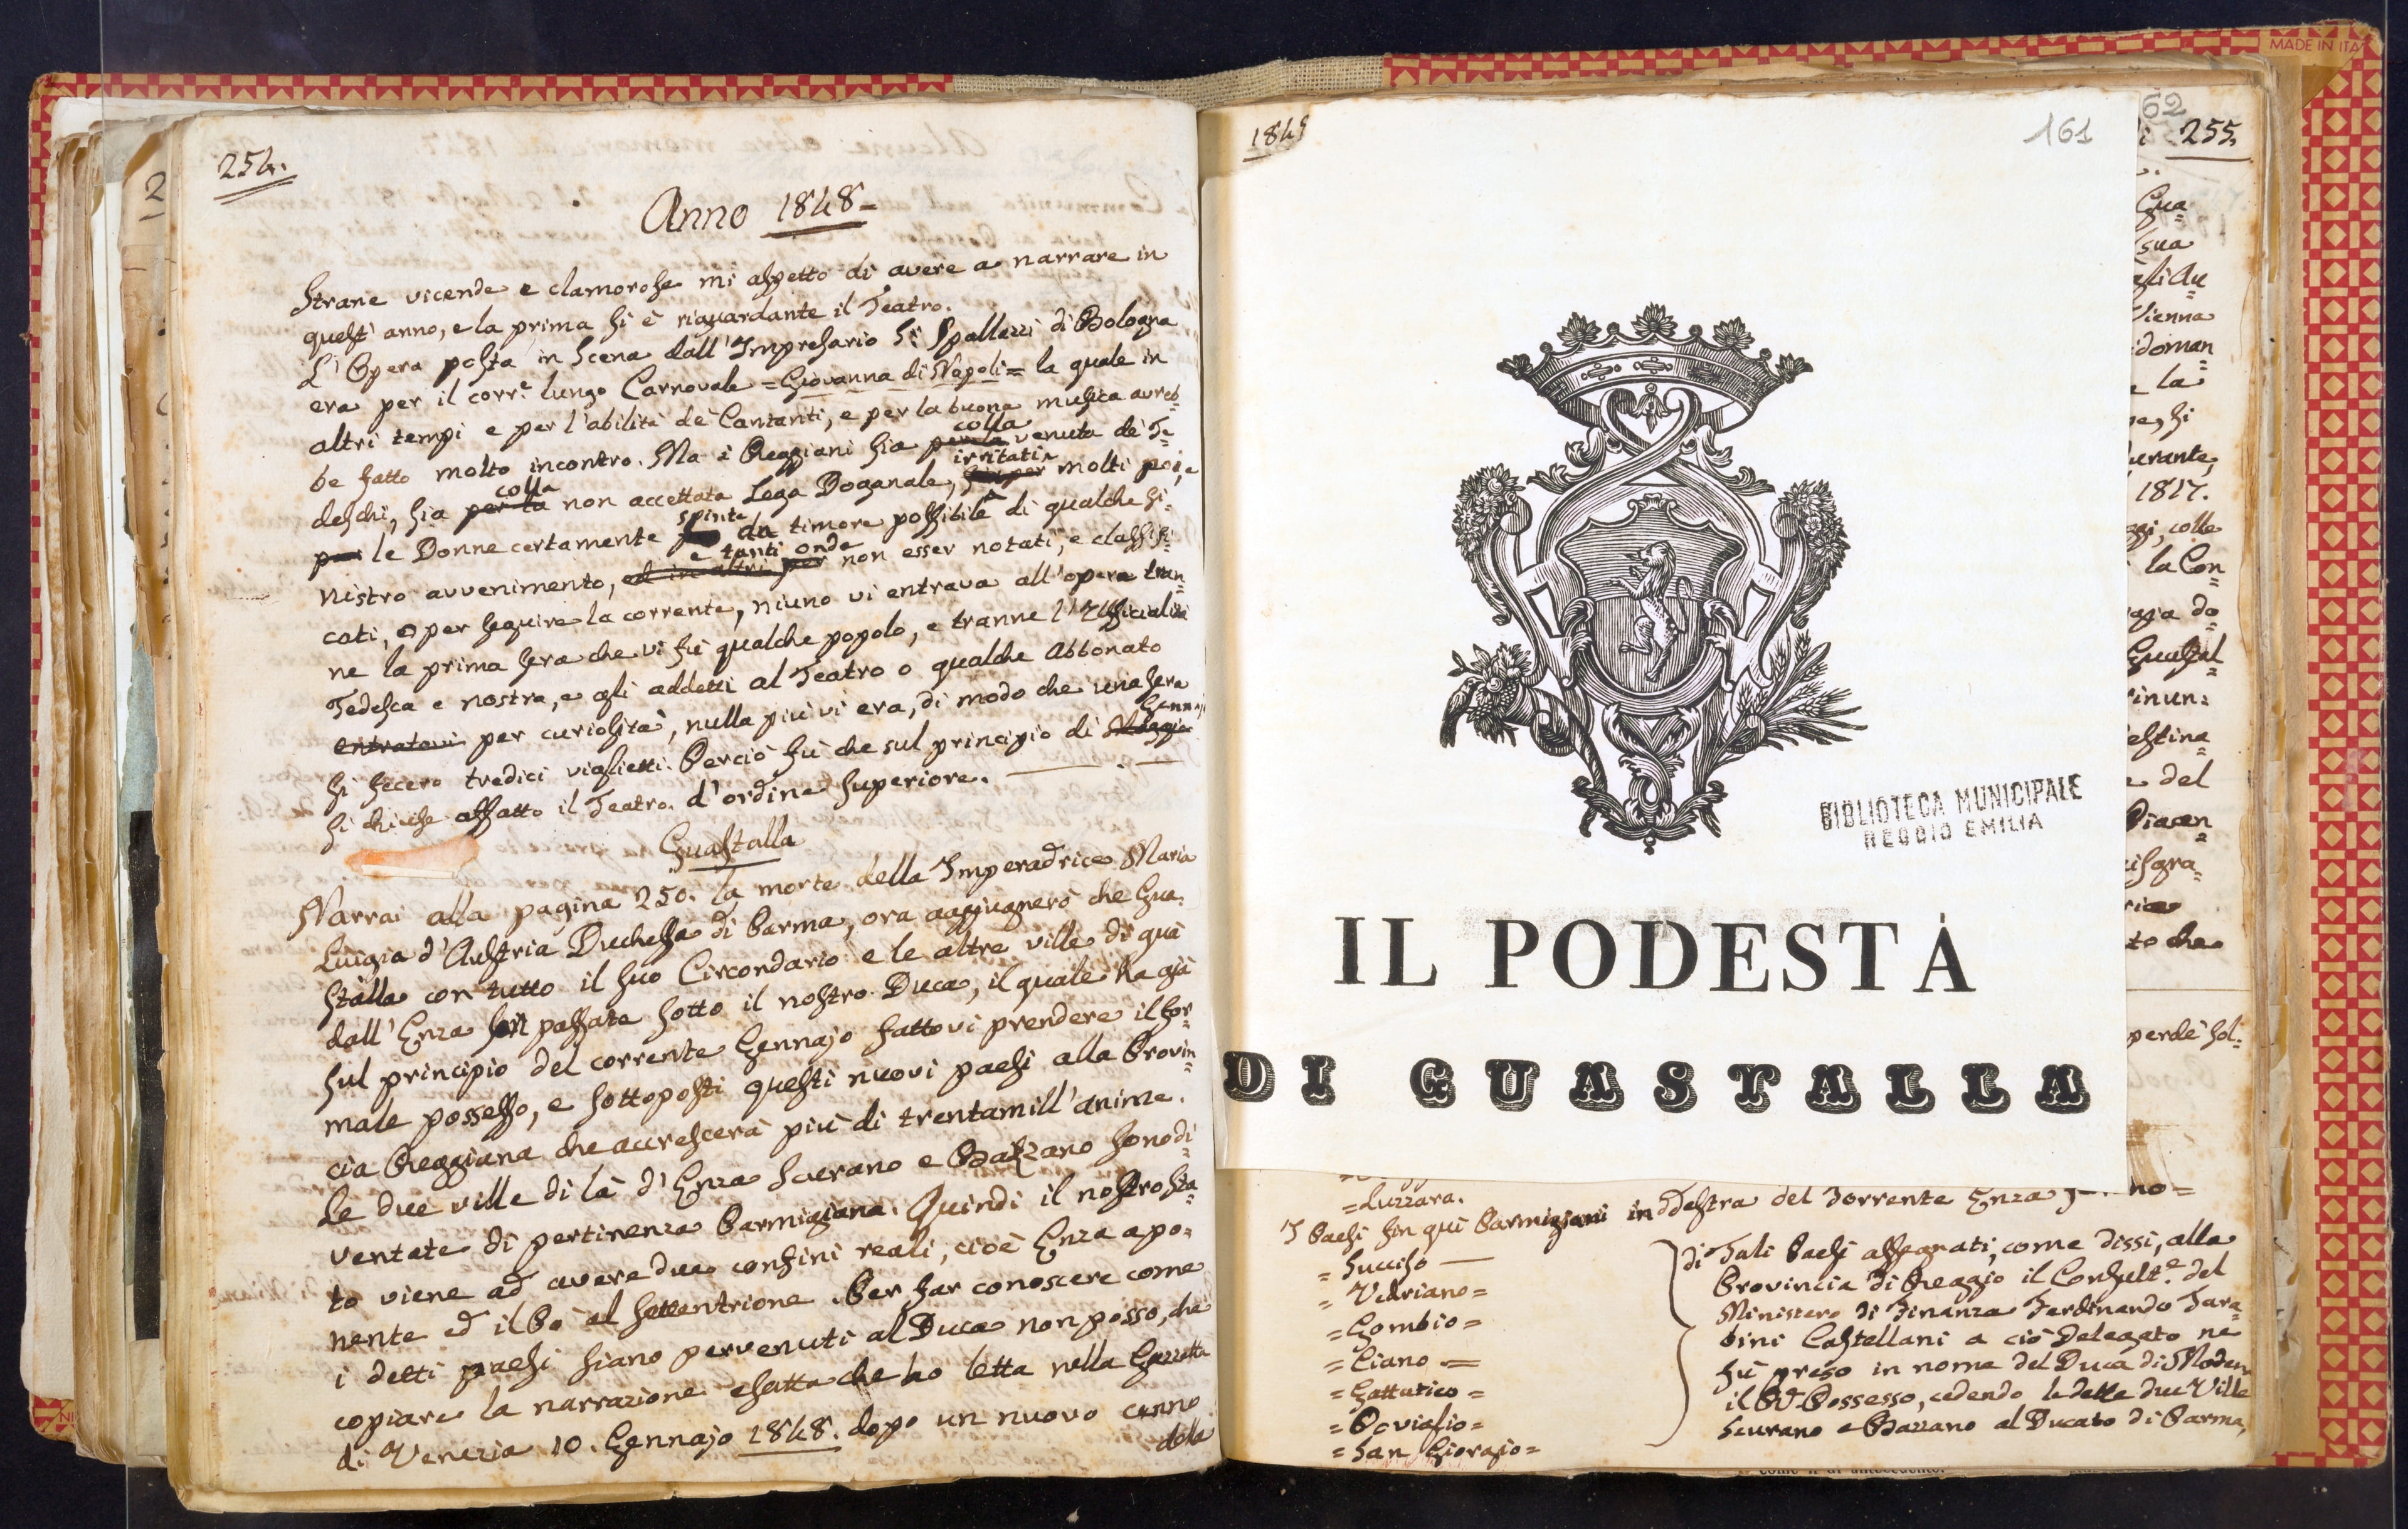 254.
Anno 1848=
Strane vicende e clamorose mi aspetto di avere a narrare in
quest'anno, e la prima si è riguardante il Teatro.
L'Opera posta in Scena dall'Impresario Sʳ Spallazzi di Bologna
era per il corr.e lungo Carnovale =Giovanna di Napoli= la quale in
altri tempi e per l'abilità de' Cantanti, e per la buona musica avreb=
be fatto molto incontro. Ma i Reggiani sia per la colla venuta de' Te=
deschi, sia per la colla non accettata Lega Doganale, irritati molti poi, e
per le Donne certamente spinte da timore possibile di qualche si=
nistro avvenimento, ed in altri per e tanti onde non esser notati, e classifi=
cati, o per seguire la corrente, niuno vi entrava all'opera tran=
ne la prima sera che vi fù qualche popolo, e tranne l'Ufficialità
Tedesca e nostra, e gli addetti al Teatro o qualche Abbonato
entratovi per curiosità, nulla più vi era, di modo che una sera
si fecero tredici viglietti. Perciò fù che sul principio di Maggio Gennajo
si chiuse affatto il Teatro d'ordine superiore.
Guastalla
Narrai alla pagina 250. la morte della Imperadrice Maria
Luigia d'Austria Duchessa di Parma, ora aggiugnerò che Gua=
stalla con tutto il suo Circondario e le altre ville di quà
dall'Enza son passate sotto il nostro Duca, il quale ha già
sul principio del corrente Gennajo fattovi prendere il for=
male possesso, e sottoposti questi nuovi paesi alla Provin=
cia Reggiana che accrescerà più di trentamill'anime.
Le due ville di là d'Enza Scurano e Bazzano sono di=
ventate di pertinenza Parmigiana. Quindi il nostro Sta=
to viene ad avere due confini reali, cioè Enza a po=
nente ed il Pò al settentrione. Per far conoscere come
i detti paesi siano pervenuti al Duca non posso, che
copiare la narrazione esatta che ho letta nella Gazzetta
di Venezia 10. Gennajo 1848. dopo un nuovo cenno
della
1848
161
62
255.
IL PODESTÀ
DI GUASTALLA
BIBLIOTECA MUNICIPALE
REGGIO EMILIA
Gua=
sua
Vienna
doman=
la
si
urante,
1817.
colle
la Con=
Guastal=
rinun=
estina=
del
Piacen=
to che
perdè sol=
=Luzzara.
I Paesi fin quì Parmigiani in Destra del Torrente Enza
=Succiso
=Vedriano=
=Gombio=
=Ciano=
=Gattatico=
=Poviglio=
=San Giorgio=
di Tali Paesi assegnati, come dissi, alla
Provincia di Reggio il Consult.e del
Ministero di Finanza Ferdinando Tara=
bini Castellani a ciò Delegato ne
fù preso in nome del Duca di Moden
il Possesso, cedendo le dette due Ville
Scurano e Bazzano al Ducato di Parma,
MADE IN ITA